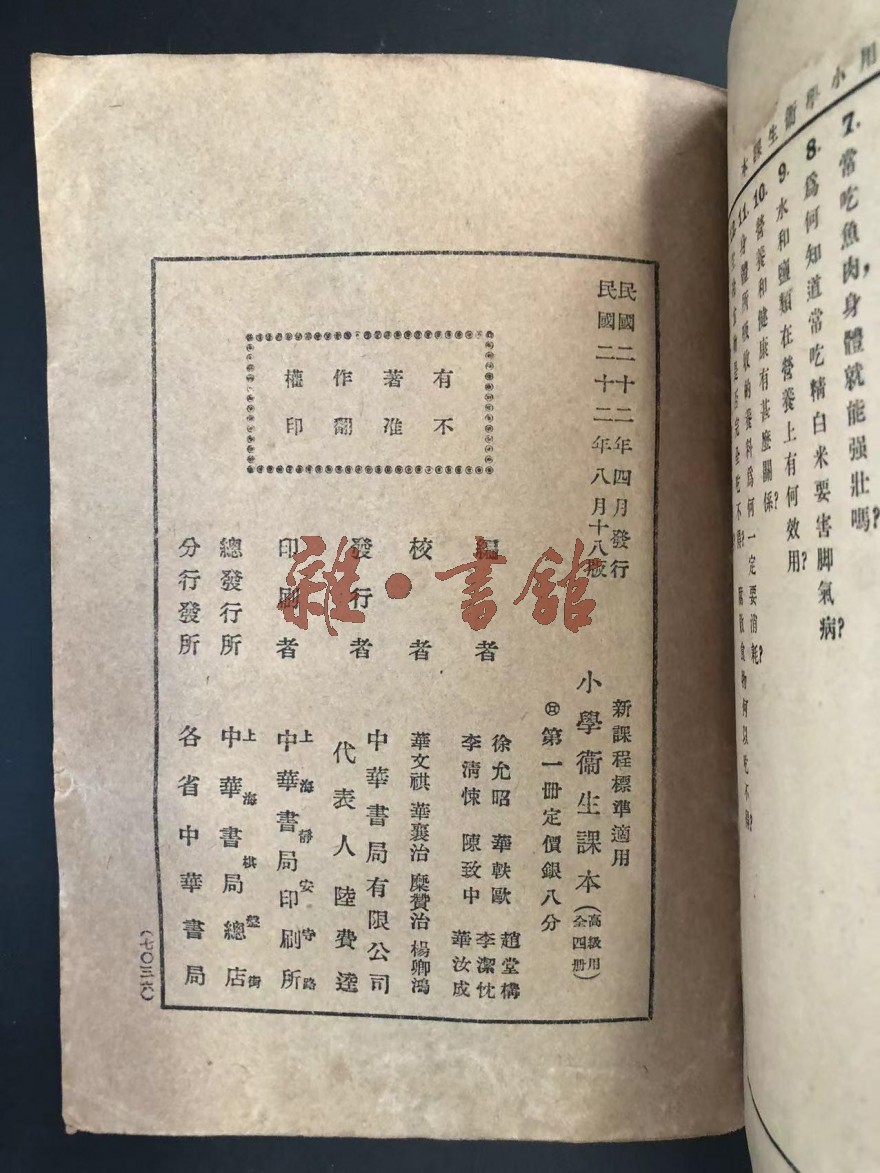 用小學衛生課本
7. 常吃魚肉，身體就能强壯嗎？
8. 爲何知道常吃精白米要害脚氣病？
9. 水和鹽類在營養上有何效用？
10. 營養和健康有甚麽關係？
11. 身體所吸收的養料爲何一定要消耗？
腐敗食物何以吃不得？
民國二十二年四月發行
民國二十二年八月十八版
新課程標準適用
小學衞生課本（高級用 全四册）
第一册定價銀八分
有著作權
不准翻印
編者
徐允昭 華軼歐 趙堂構
李清悚 陳致中 李潔忱
華汝成
校者
華文祺 華襄治 糜贊治 楊卿鴻
發行者
中華書局有限公司
代表人 陸費逵
印刷者
上海靜安寺路
中華書局印刷所
總發行所
上海棋盤街
中華書局總店
分行發所
各省中華書局
（七〇三六）
雜·書館